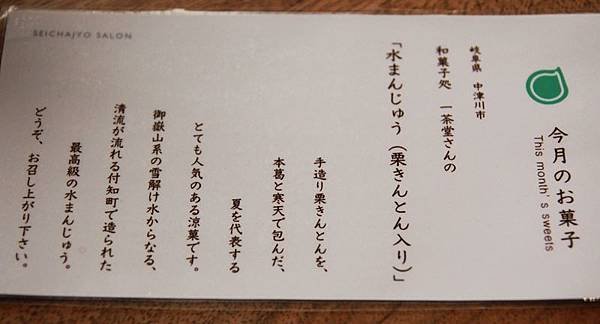 今月のお菓子
This month's sweets
岐阜県 中津川市
和菓子処 一茶堂さんの
「水まんじゅう（栗きんとん入り）」
手造り栗きんとんを、
本葛と寒天で包んだ、
夏を代表する
とても人気のある涼菓です。
御嶽山系の雪解け水からなる、
清流が流れる付知町で造られた
最高級の水まんじゅう。
どうぞ、お召し上がり下さい。
SEICHAJYO SALON